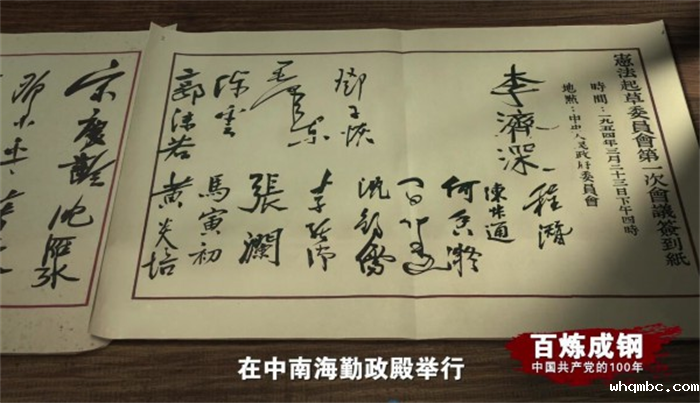 憲法起草委員會第一次會議簽到紙
時間：一九五四年三月二十三日下午四時
地點：中央人民政府委員會
李濟深
程潛
陳叔通
何香凝
鄧子恢
沈鈞儒
毛澤東
張瀾
陳雲
馬寅初
郭沫若
黃炎培
宋慶齡
沈雁冰
在中南海勤政殿举行
百炼成钢
中国共产党的100年
whqmbc.com